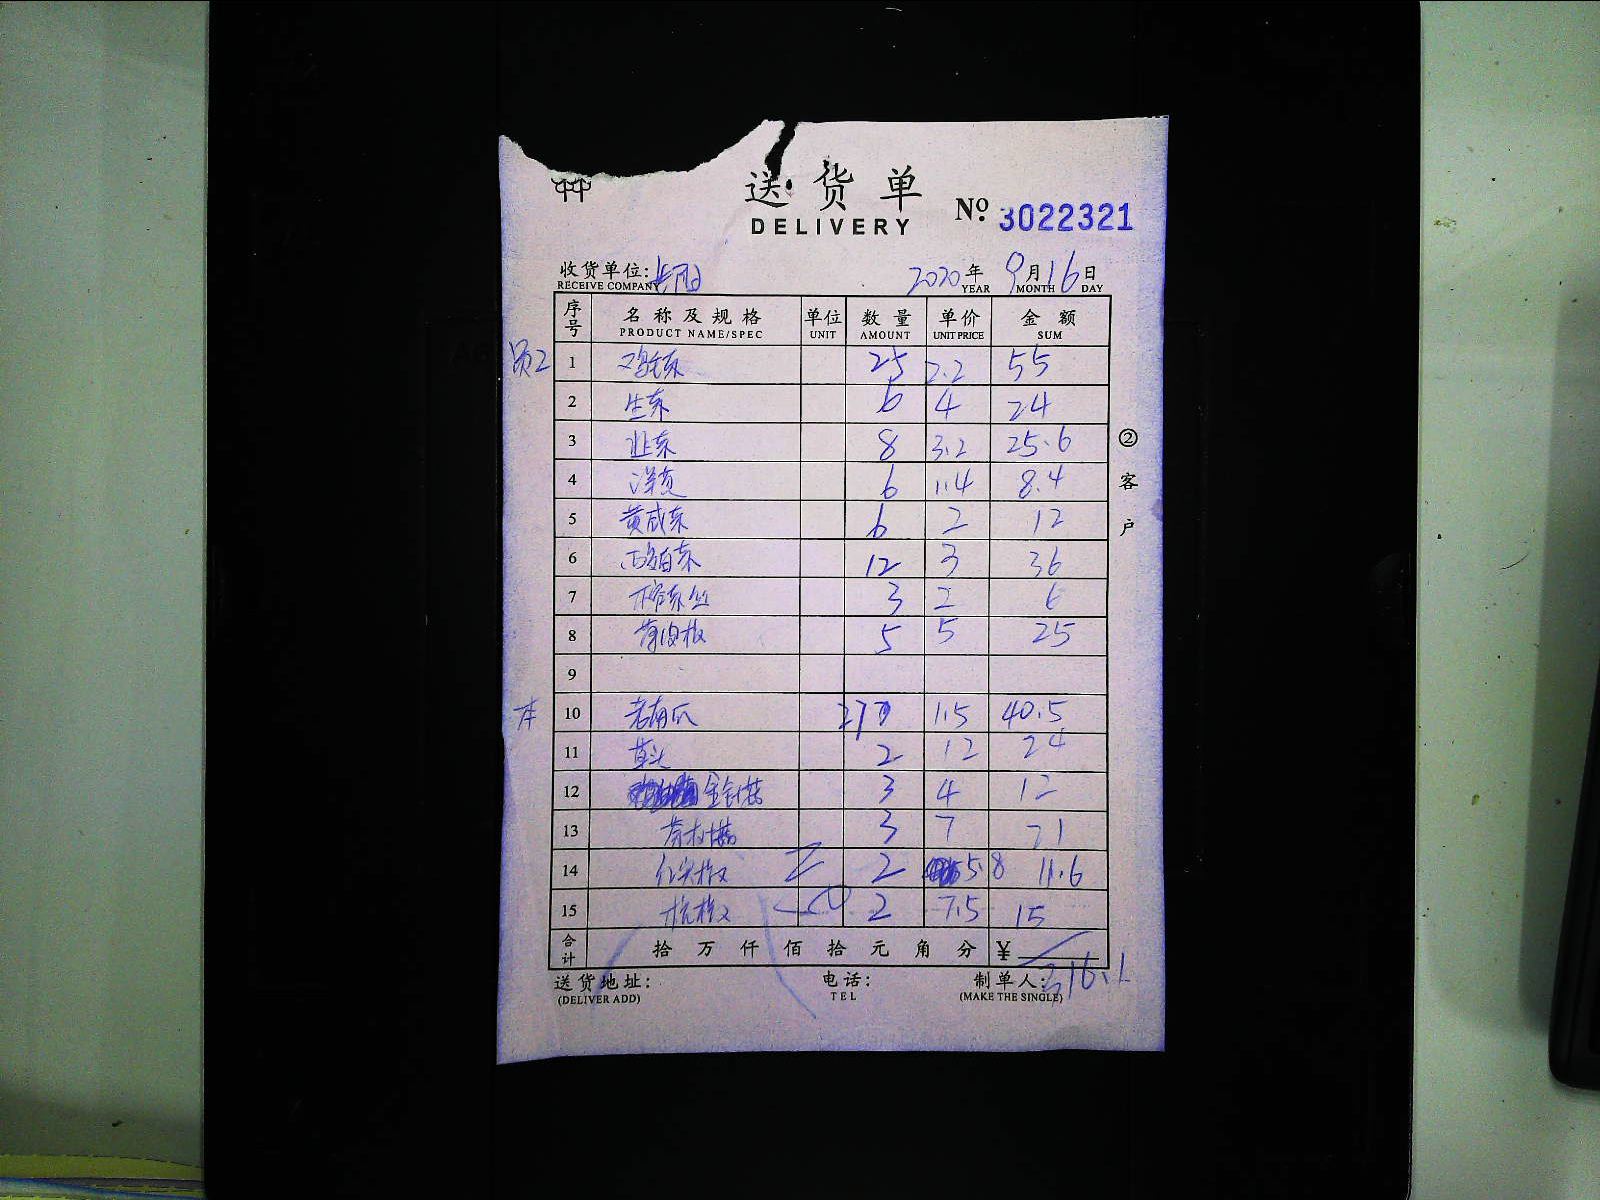 送货单
DELIVERY
№ 3022321
收货单位: 2020年 9月16日
RECEIVE COMPANY YEAR MONTH DAY
序号 名称及规格 单位 数量 单价 金额
PRODUCT NAME/SPEC UNIT AMOUNT UNIT PRICE SUM
员工 1 鸡毛菜 25 2.2 55
2 生菜 6 4 24
3 韭菜 8 3.2 25.6
4 洋葱 6 1.4 8.4
5 黄咸菜 6 2 12
6 鸡白菜 12 3 36
7 榨菜丝 3 2 6
8 5 5 25
9
本 10 老南瓜 27 1.5 40.5
11 草头 2 12 24
12 金针菇 3 4 12
13 3 7 21
14 2 5.8 11.6
15 杭椒 2 7.5 15
合计 拾 万 仟 佰 拾 元 角 分 ¥ 316.1
送货地址: 电话: 制单人:
(DELIVER ADD) TEL (MAKE THE SINGLE)
②客户